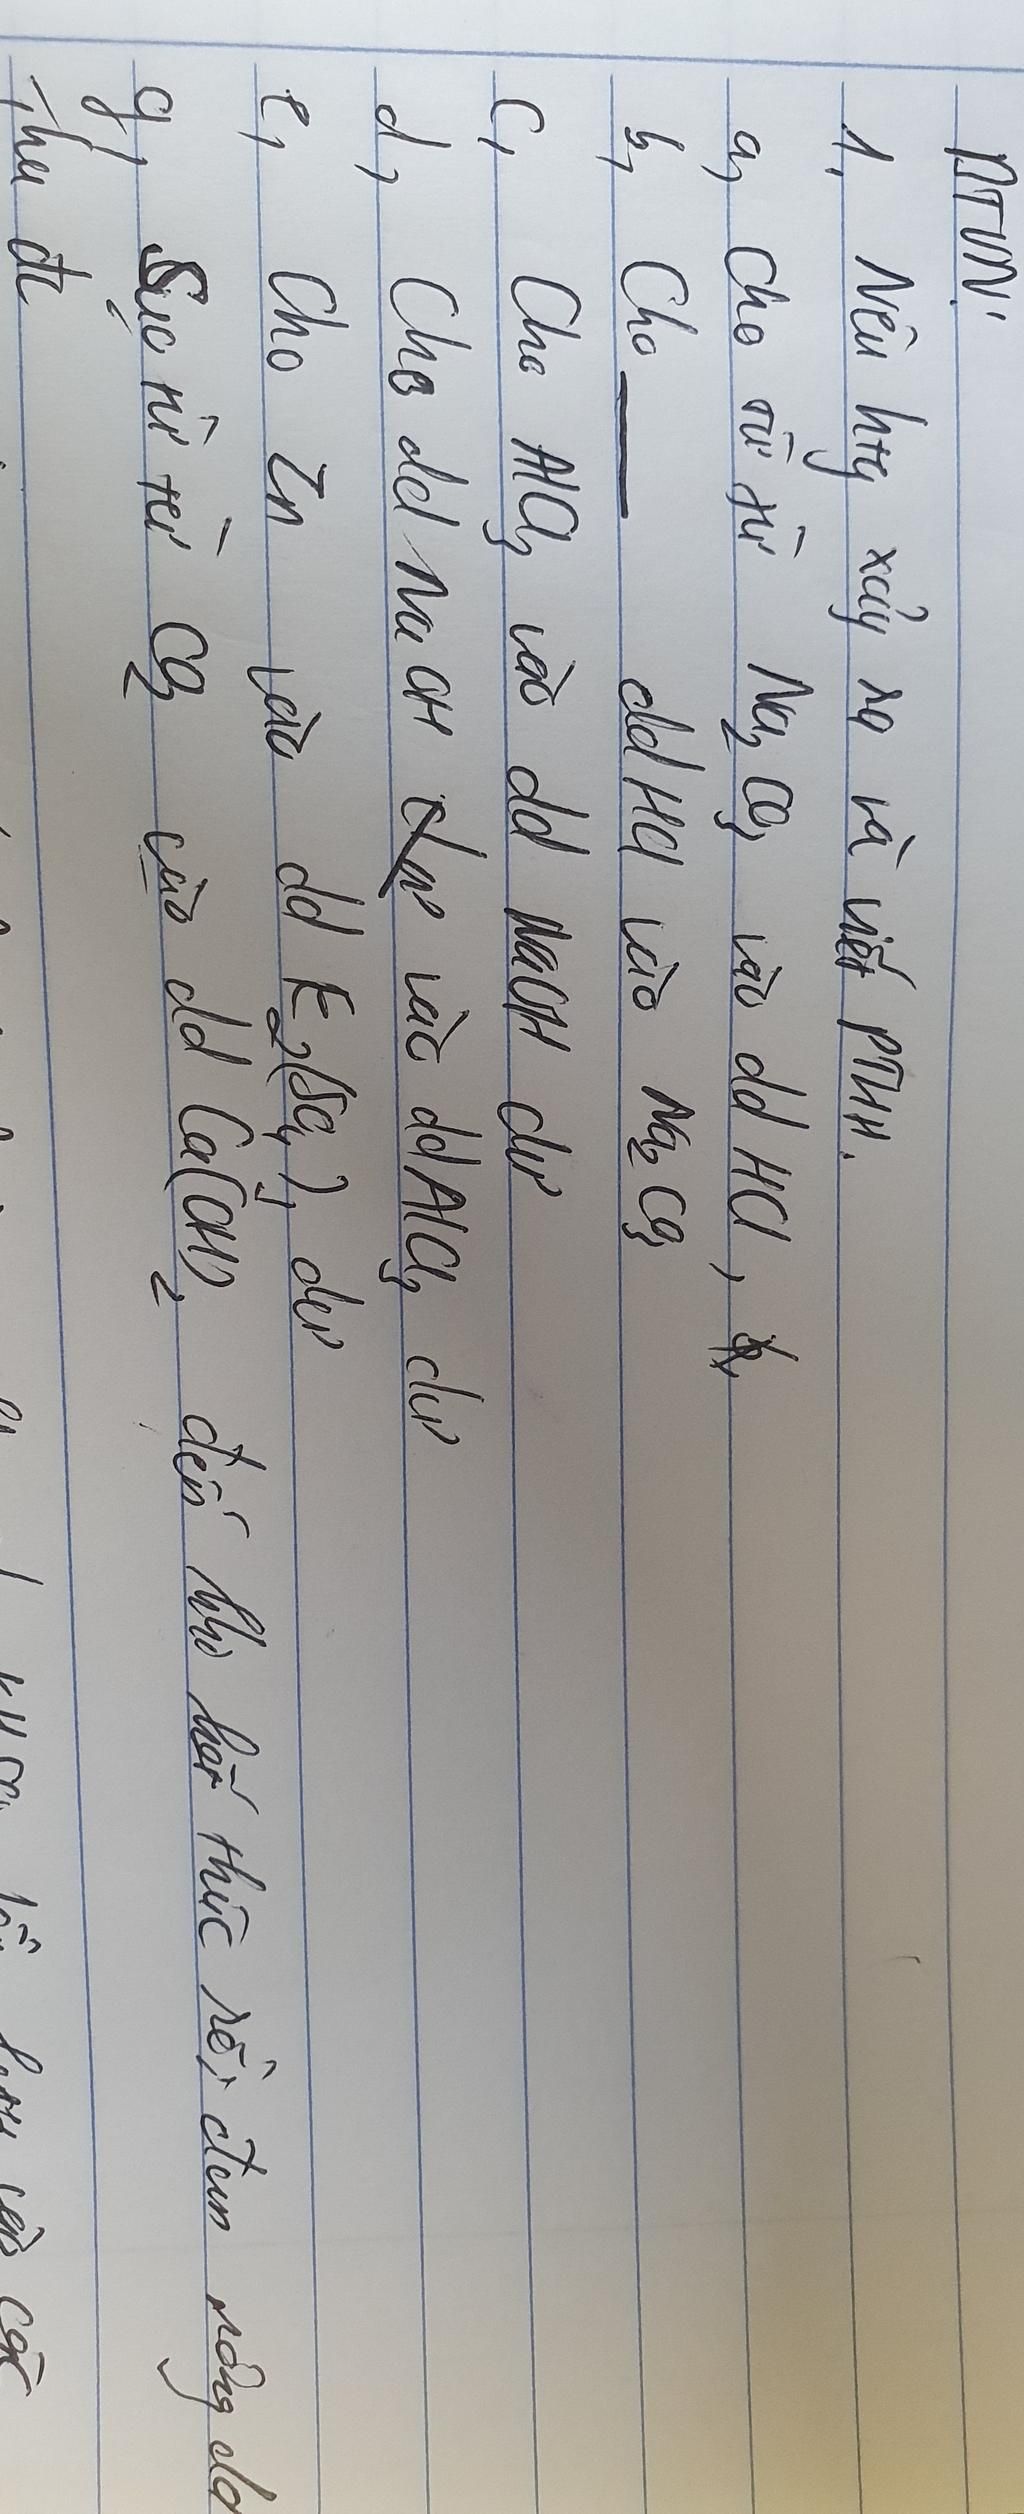 PTVN:
1, Nêu htg xảy ra và viết PTHH.
a, Cho từ từ Na2CO3 vào dd HCl,
b, Cho ——— dd HCl vào Na2CO3
c, Cho AlCl3 vào dd NaOH dư
d, Cho dd NaOH vào dd AlCl3 dư
e, Cho Zn vào dd Fe2(SO4)3 dư
g, Sục từ từ CO2 vào dd Ca(OH)2 đến khi kết thúc rồi đun nóng dd
thu đc